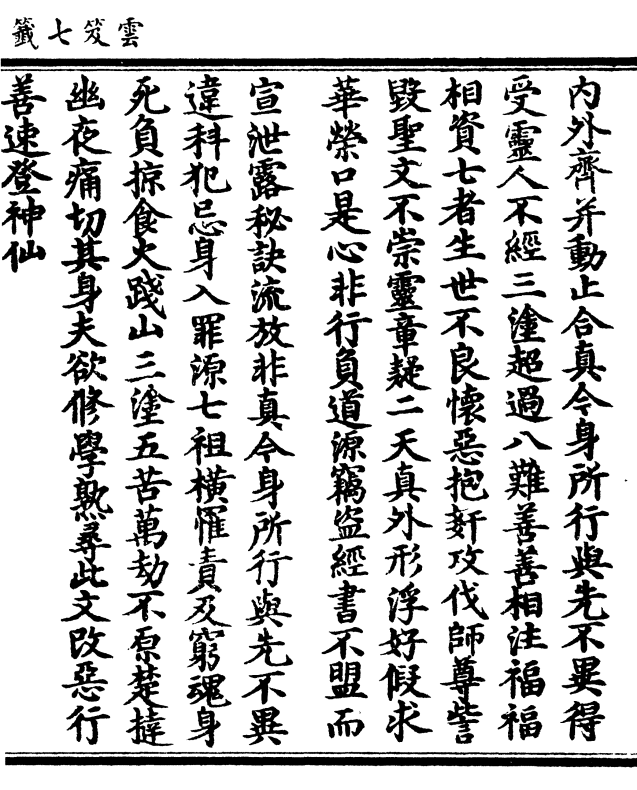 雲笈七籤
内外齊并動止合真今身所行與先不異得
受靈人不經三塗超過八難善善相注福福
相資七者生世不良懷惡抱姧攻伐師尊訾
毀聖文不崇靈章疑二天真外形浮好假求
華榮口是心非行負道源竊盗經書不盟而
宣泄露秘訣流放非真今身所行與先不異
違科犯忌身入罪源七祖横罹責及窮魂身
死負掠食火踐山三塗五苦萬劫不原楚撻
幽夜痛切其身夫欲修學熟尋此文改惡行
善速登神仙